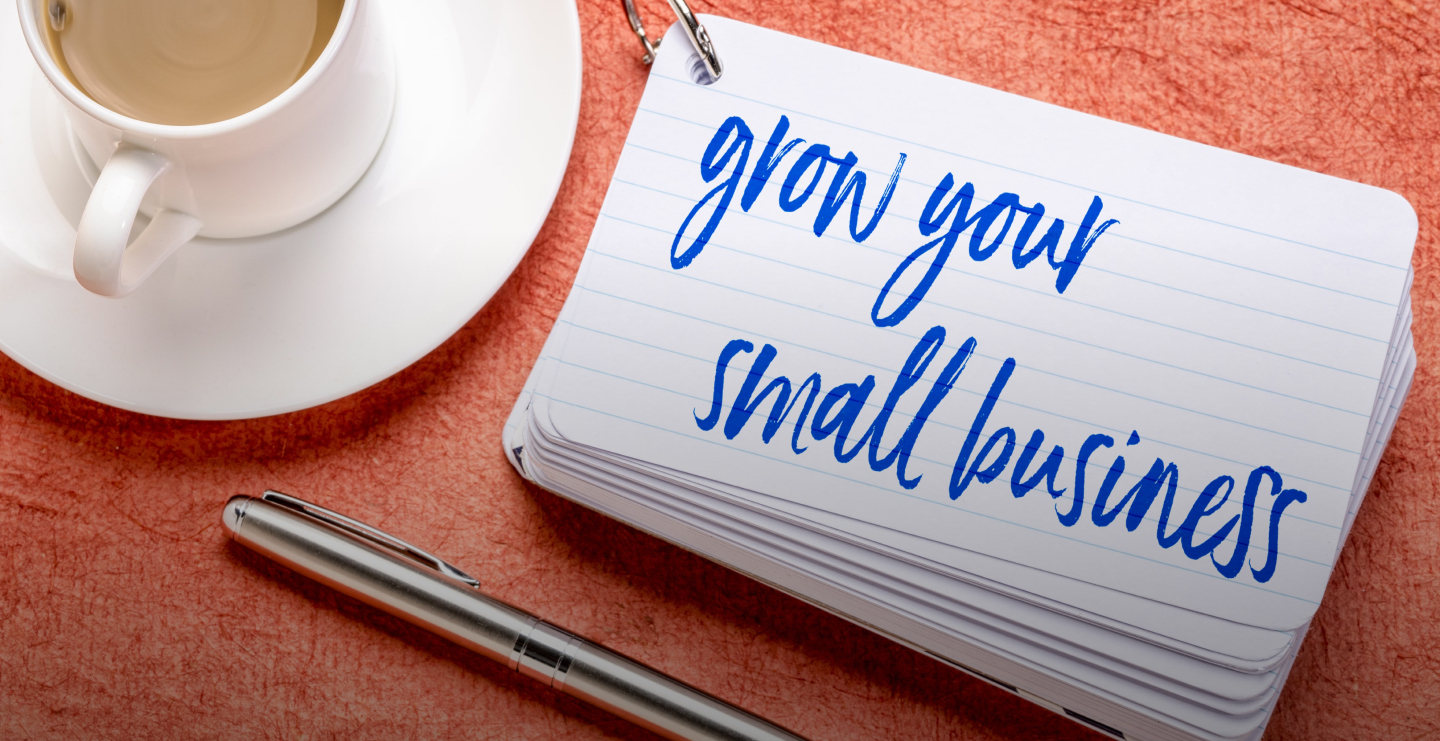 grow your
small business